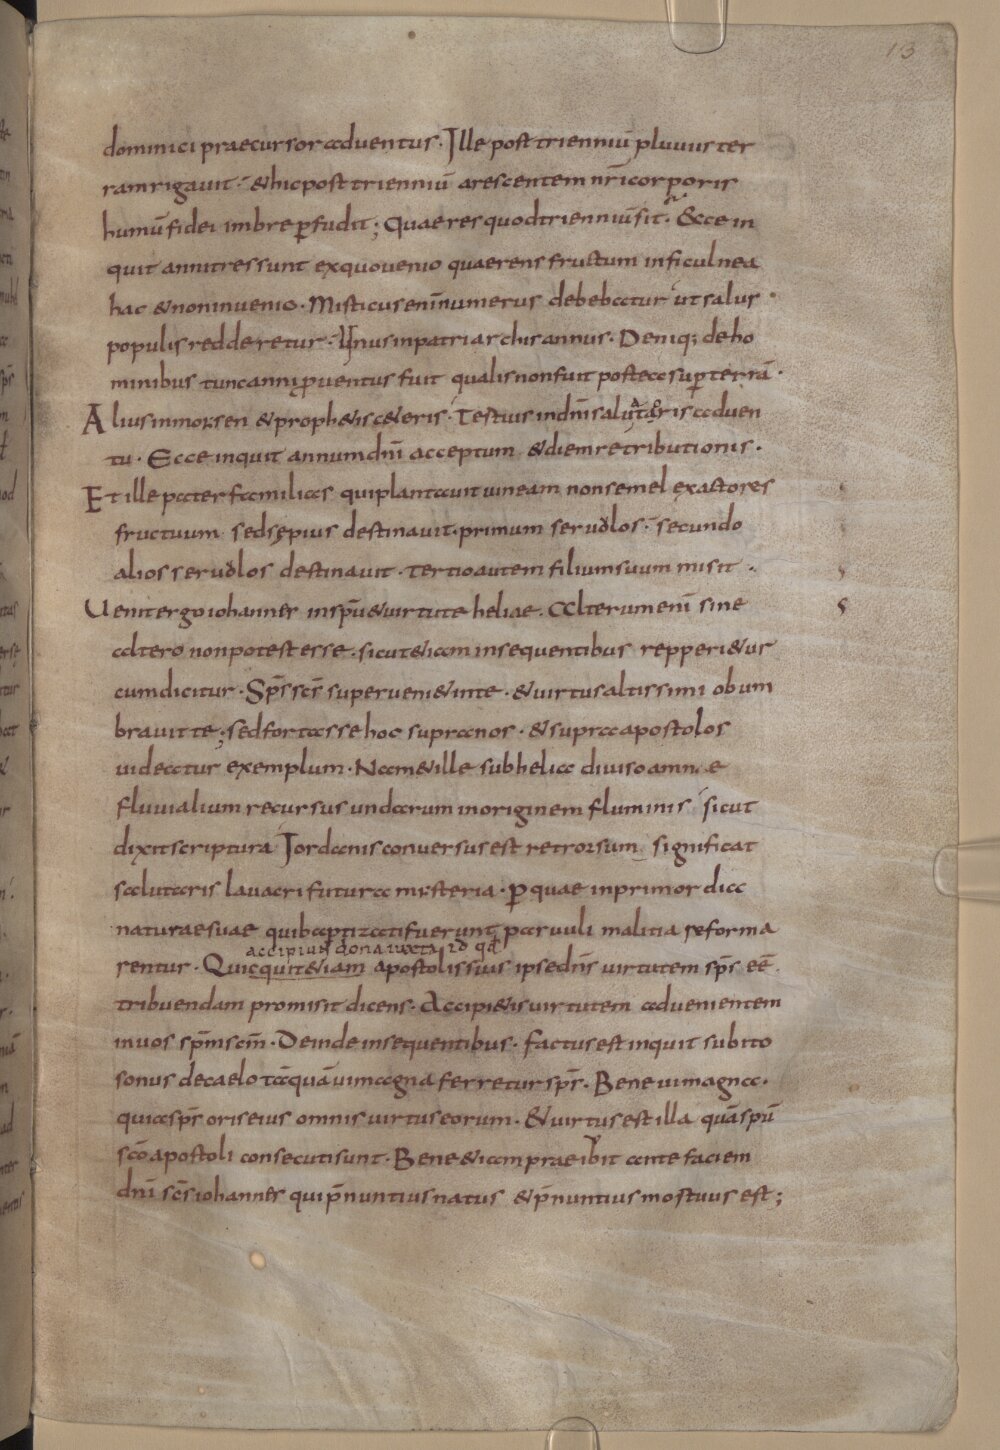 13
dominici praecursor aduentus. Ille post trienniū pluuiis ter
ram rigauit. & hic post trienniū arescentem nr̄i corporis
humū fidei imbre ꝑfudit; Quae res quod triennium sit. Ecce in
quit anni tres sunt ex quo uenio quaerens fructum in ficulnea
hac & non inuenio. Misticus enī numerus debebatur ut salus
populis redderetur. Unus in patriarchis annus. Deniq; de ho
minibus tunc anni ꝓuentus fuit qualis non fuit postea suꝑ terrā.
Alius in mosen & proph&is c&eris. Tertius in dnī salutaris aduen
tu. Ecce inquit annum dnī acceptum & diem retributionis.
Et ille pater familias qui plantauit uineam non semel exactores
fructuum sed sępius destinauit. primum seruolos. secundo
alios seruolos destinauit. Tertio autem filium suum misit.
Uenit ergo iohannes in spū & uirtute heliae. Alterum enī sine
altero non potest esse. sicut &iam in sequentibus repperi&ur
cum dicitur. Sps̄ scs̄ superueni& in te. & uirtus altissimi obum
brauit te; sed fortasse hoc supra nos. & supra apostolos
uideatur exemplum. Nam & ille sub helia diuiso amne
fluuialium recursus undarum in originem fluminis sicut
dixit scriptura Iordanis conuersus est retrorsum significat
salutaris lauacri futura misteria. ꝑ quae in primordia
naturae suae qui baptizati fuerunt paruuli malitia reforma
accipiunt dona iuxta id qd̄
rentur. Quic quit &iam apostolis suis ipse dn̄s uirtutem sps̄ eē
tribuendam promisit dicens. Accipi&is uirtutem aduenientem
in uos spm̄ scm̄. Deinde in sequentibus. factus est inquit subito
sonus de caelo tāquā ui magna ferretur sps̄. Bene ui magna.
quia sps̄ oris eius omnis uirtus eorum. & uirtus est illa quā spū
scō apostoli consecuti sunt. Bene &iam praeibit ante faciem
dnī scs̄ iohannes qui p̄nuntius natus & p̄nuntius mortuus est;